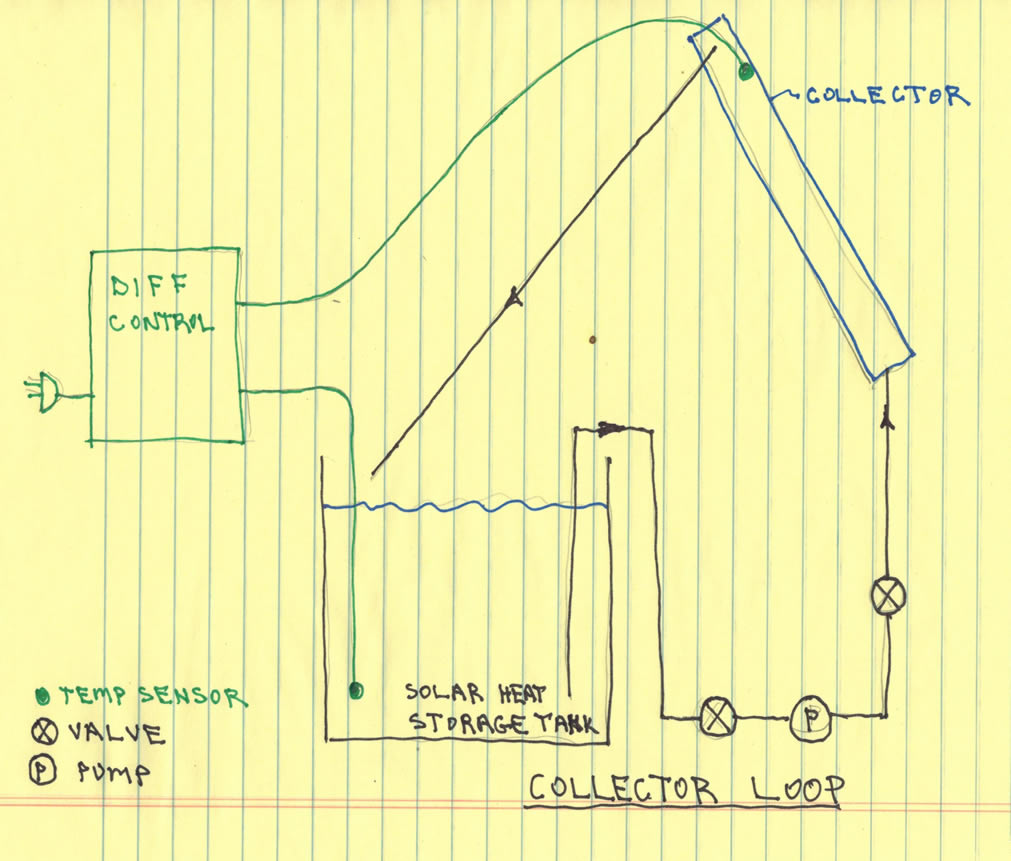 COLLECTOR
DIFF
CONTROL
SOLAR HEAT
STORAGE TANK
TEMP SENSOR
VALVE
P
P PUMP
COLLECTOR LOOP